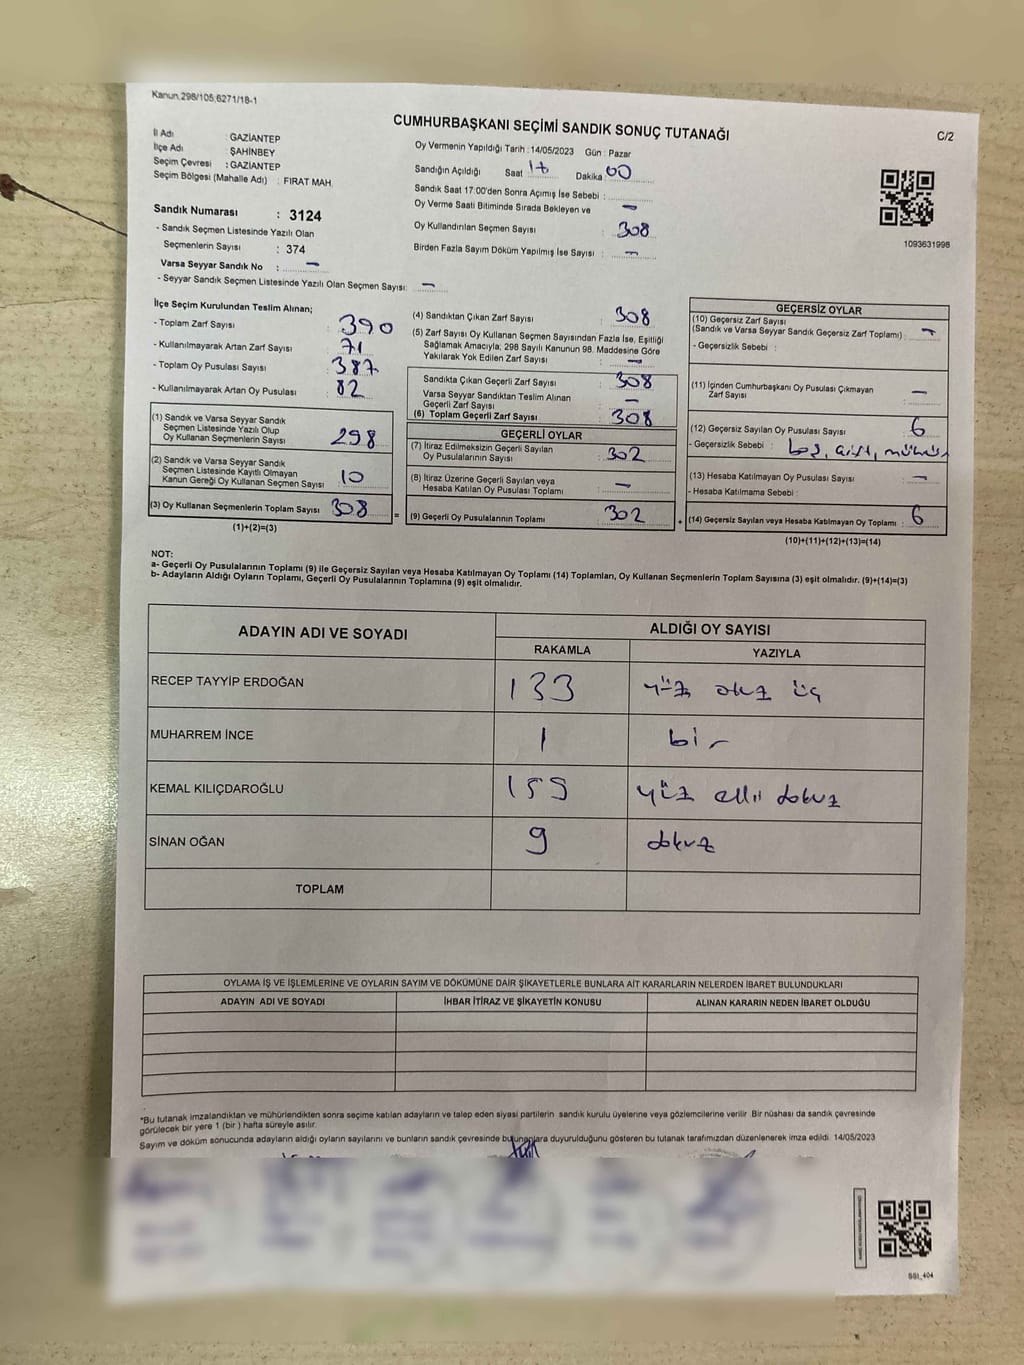 Kanun.298/105;6271/18-1
CUMHURBAŞKANI SEÇİMİ SANDIK SONUÇ TUTANAĞI
C/2
İl Adı : GAZİANTEP
İlçe Adı : ŞAHİNBEY
Seçim Çevresi : GAZİANTEP
Seçim Bölgesi (Mahalle Adı) : FIRAT MAH.
Oy Vermenin Yapıldığı Tarih : 14/05/2023 Gün : Pazar
Sandığın Açıldığı Saat 17 Dakika 00
Sandık Saat 17:00'den Sonra Açımış İse Sebebi :
Oy Verme Saati Bitiminde Sırada Bekleyen ve -
Oy Kullandırılan Seçmen Sayısı : 308
Birden Fazla Sayım Döküm Yapılmış İse Sayısı : -
1093631996
Sandık Numarası : 3124
- Sandık Seçmen Listesinde Yazılı Olan
Seçmenlerin Sayısı : 374
Varsa Seyyar Sandık No : -
- Seyyar Sandık Seçmen Listesinde Yazılı Olan Seçmen Sayısı: -
İlçe Seçim Kurulundan Teslim Alınan;
- Toplam Zarf Sayısı 390
- Kullanılmayarak Artan Zarf Sayısı 71
- Toplam Oy Pusulası Sayısı 387
- Kullanılmayarak Artan Oy Pusulası 82
(1) Sandık ve Varsa Seyyar Sandık
Seçmen Listesinde Yazılı Olup
Oy Kullanan Seçmenlerin Sayısı 298
(2) Sandık ve Varsa Seyyar Sandık
Seçmen Listesinde Kayıtlı Olmayan
Kanun Gereği Oy Kullanan Seçmen Sayısı 10
(3) Oy Kullanan Seçmenlerin Toplam Sayısı 308
(1)+(2)=(3)
(4) Sandıktan Çıkan Zarf Sayısı : 308
(5) Zarf Sayısı Oy Kullanan Seçmen Sayısından Fazla İse, Eşitliği
Sağlamak Amacıyla, 298 Sayılı Kanunun 98. Maddesine Göre
Yakılarak Yok Edilen Zarf Sayısı : -
Sandıkta Çıkan Geçerli Zarf Sayısı : 308
Varsa Seyyar Sandıktan Teslim Alınan
Geçerli Zarf Sayısı : -
(6) Toplam Geçerli Zarf Sayısı : 308
GEÇERLİ OYLAR
(7) İtiraz Edilmeksizin Geçerli Sayılan
Oy Pusulalarının Sayısı : 302
(8) İtiraz Üzerine Geçerli Sayılan veya
Hesaba Katılan Oy Pusulası Toplamı : -
= (9) Geçerli Oy Pusulalarının Toplamı : 302
GEÇERSİZ OYLAR
(10) Geçersiz Zarf Sayısı
(Sandık ve Varsa Seyyar Sandık Geçersiz Zarf Toplamı) : -
- Geçersizlik Sebebi :
(11) İçinden Cumhurbaşkanı Oy Pusulası Çıkmayan
Zarf Sayısı : -
(12) Geçersiz Sayılan Oy Pusulası Sayısı : 6
- Geçersizlik Sebebi :
(13) Hesaba Katılmayan Oy Pusulası Sayısı : -
- Hesaba Katılmama Sebebi :
+ (14) Geçersiz Sayılan veya Hesaba Katılmayan Oy Toplamı : 6
(10)+(11)+(12)+(13)=(14)
NOT:
a- Geçerli Oy Pusulalarının Toplamı (9) ile Geçersiz Sayılan veya Hesaba Katılmayan Oy Toplamı (14) Toplamları, Oy Kullanan Seçmenlerin Toplam Sayısına (3) eşit olmalıdır. (9)+(14)=(3)
b- Adayların Aldığı Oyların Toplamı, Geçerli Oy Pusulalarının Toplamına (9) eşit olmalıdır.
ADAYIN ADI VE SOYADI ALDIĞI OY SAYISI
RAKAMLA YAZIYLA
RECEP TAYYİP ERDOĞAN 133 yüz otuz üç
MUHARREM İNCE 1 bir
KEMAL KILIÇDAROĞLU 159 yüz elli dokuz
SİNAN OĞAN 9 dokuz
TOPLAM
OYLAMA İŞ VE İŞLEMLERİNE VE OYLARIN SAYIM VE DÖKÜMÜNE DAİR ŞİKAYETLERLE BUNLARA AİT KARARLARIN NELERDEN İBARET BULUNDUKLARI
ADAYIN ADI VE SOYADI İHBAR İTİRAZ VE ŞİKAYETİN KONUSU ALINAN KARARIN NEDEN İBARET OLDUĞU
*Bu tutanak imzalandıktan ve mühürlendikten sonra seçime katılan adayların ve talep eden siyasi partilerin sandık kurulu üyelerine veya gözlemcilerine verilir. Bir nüshası da sandık çevresinde
görülecek bir yere 1 (bir ) hafta süreyle asılır.
Sayım ve döküm sonucunda adayların aldığı oyların sayılarını ve bunların sandık çevresinde bulunanlara duyurulduğunu gösteren bu tutanak tarafımızdan düzenlenerek imza edildi. 14/05/2023
SSI_404